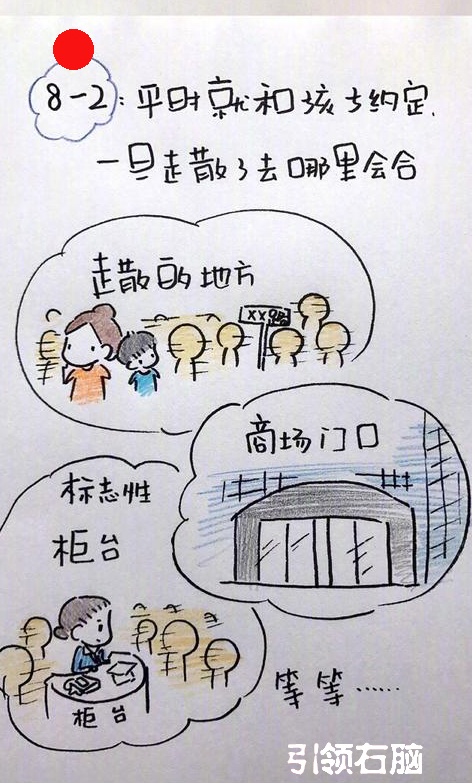 8-2：平时就和孩子约定,
一旦走散了去哪里会合
走散的地方
XX路
商场门口
标志性
柜台
柜台
等等……
引领右脑